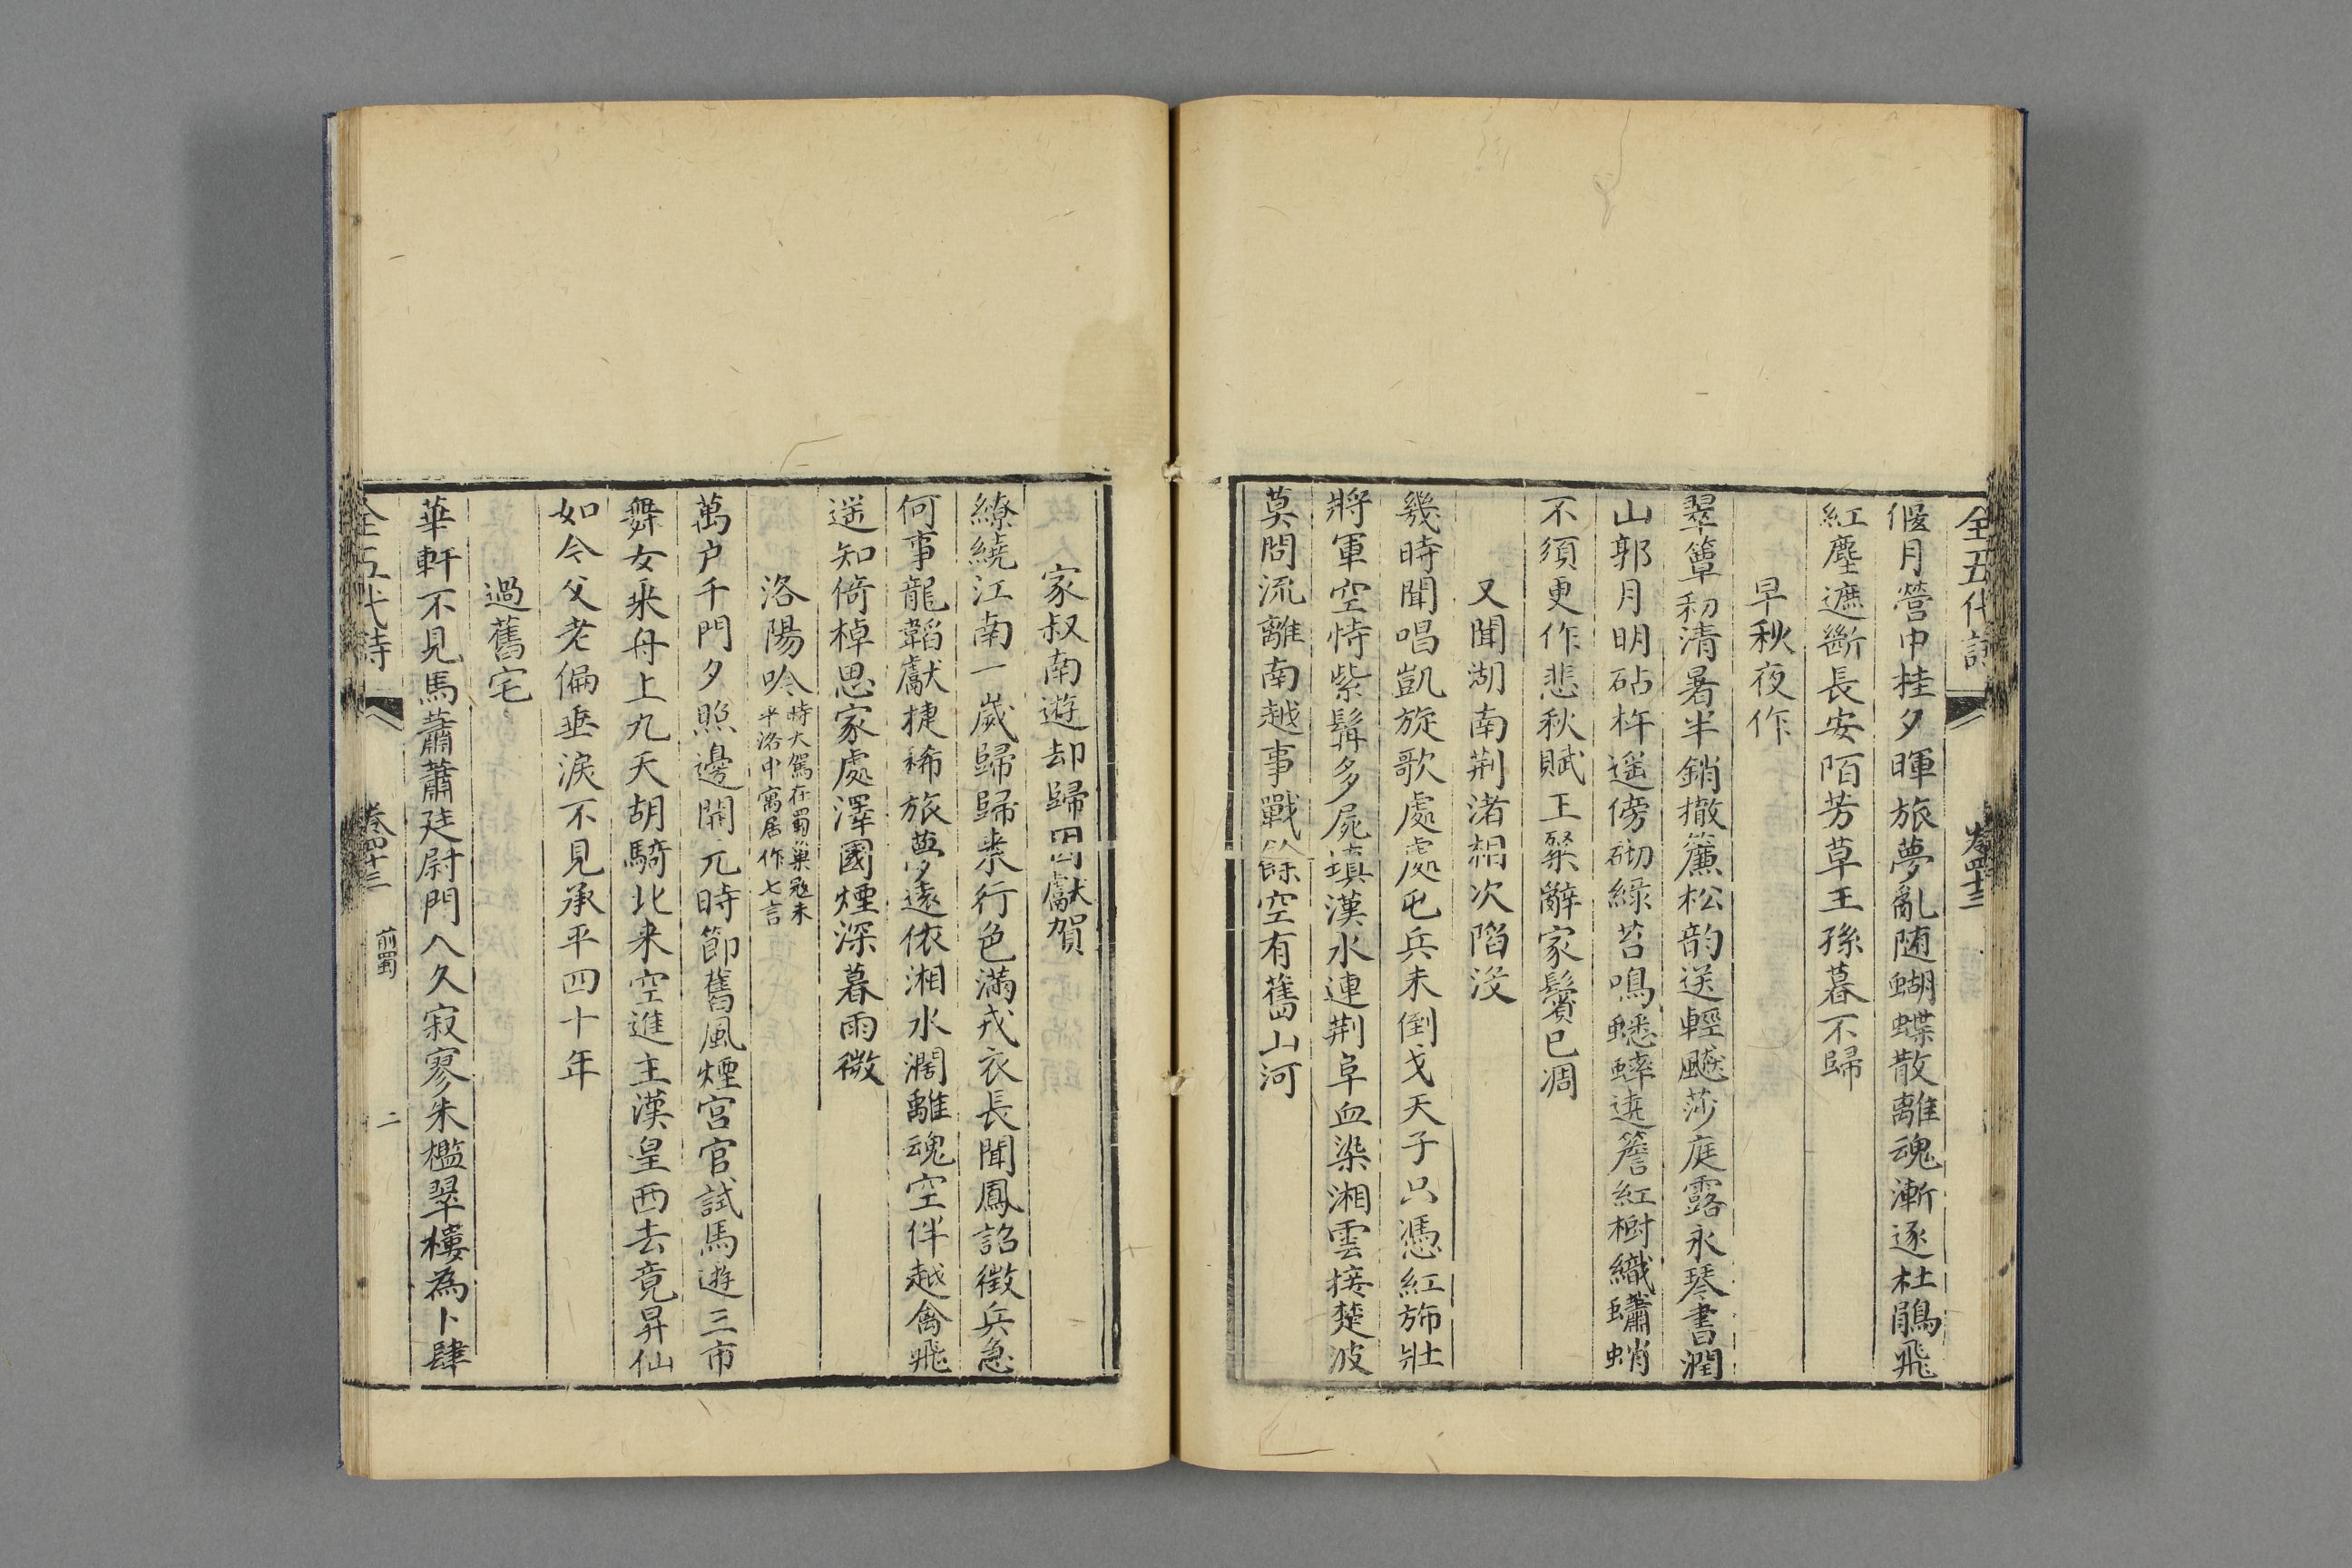 全五代詩 卷四十三
偃月營中桂夕暉旅夢亂随蝴蝶散離魂漸逐杜鵑飛
紅塵遮斷長安陌芳草王孫暮不歸
早秋夜作
翠簟初清暑半銷撤簾松韵送輕飈莎庭露永琴書潤
山郭月明砧杵遥傍砌綠苔鳴蟋蟀遶簷紅樹織蠨蛸
不須更作悲秋賦王粲辭家鬢已凋
又聞湖南荆渚相次陷没
幾時聞唱凱旋歌處處屯兵未倒戈天子只憑紅斾壯
將軍空恃紫髯多屍填漢水連荆阜血染湘雲接楚波
莫問流離南越事戰餘空有舊山河
家叔南遊却歸因獻賀
繚繞江南一歲歸歸来行色滿戎衣長聞鳳詔徴兵急
何事龍韜獻捷稀旅夢遠依湘水濶離魂空伴越禽飛
遥知倚棹思家處澤國煙深暮雨微
洛陽吟時大駕在蜀巢冦未平洛中寓居作七言
萬户千門夕照邊開元時節舊風煙宫官試馬遊三市
舞女乘舟上九天胡騎北来空進主漢皇西去竟昇仙
如今父老偏垂淚不見承平四十年
過舊宅
華軒不見馬蕭蕭廷尉門人久寂寥朱檻翠樓為卜肆
全五代詩 卷四十三 前蜀 二